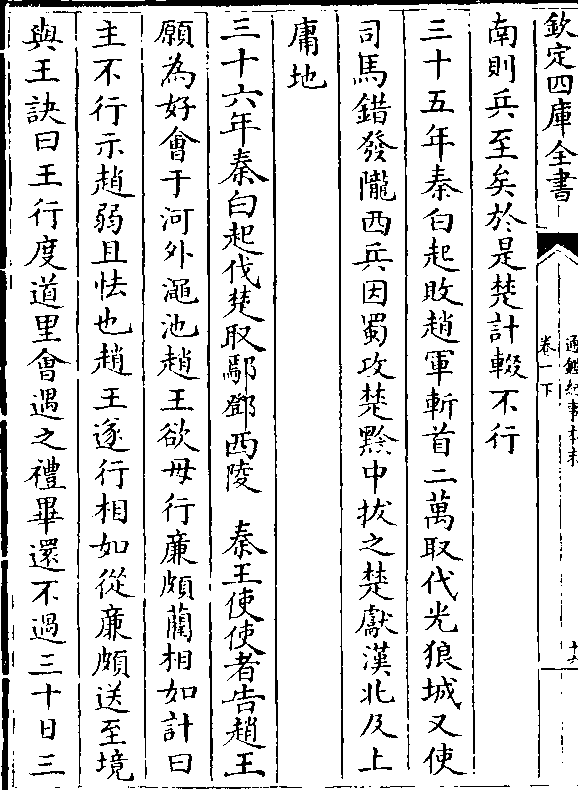 欽定四庫全書
通鑑紀事本末
卷一下
十六
南則兵至矣於是楚計輟不行
三十五年秦白起敗趙軍斬首二萬取代光狼城又使
司馬錯發隴西兵因蜀攻楚黔中拔之楚獻漢北及上
庸地
三十六年秦白起伐楚取鄢鄧西陵 秦王使使者告趙王
願為好會于河外澠池趙王欲毋行廉頗藺相如計曰
主不行示趙弱且怯也趙王遂行相如從廉頗送至境
與王訣曰王行度道里會遇之禮畢還不過三十日三